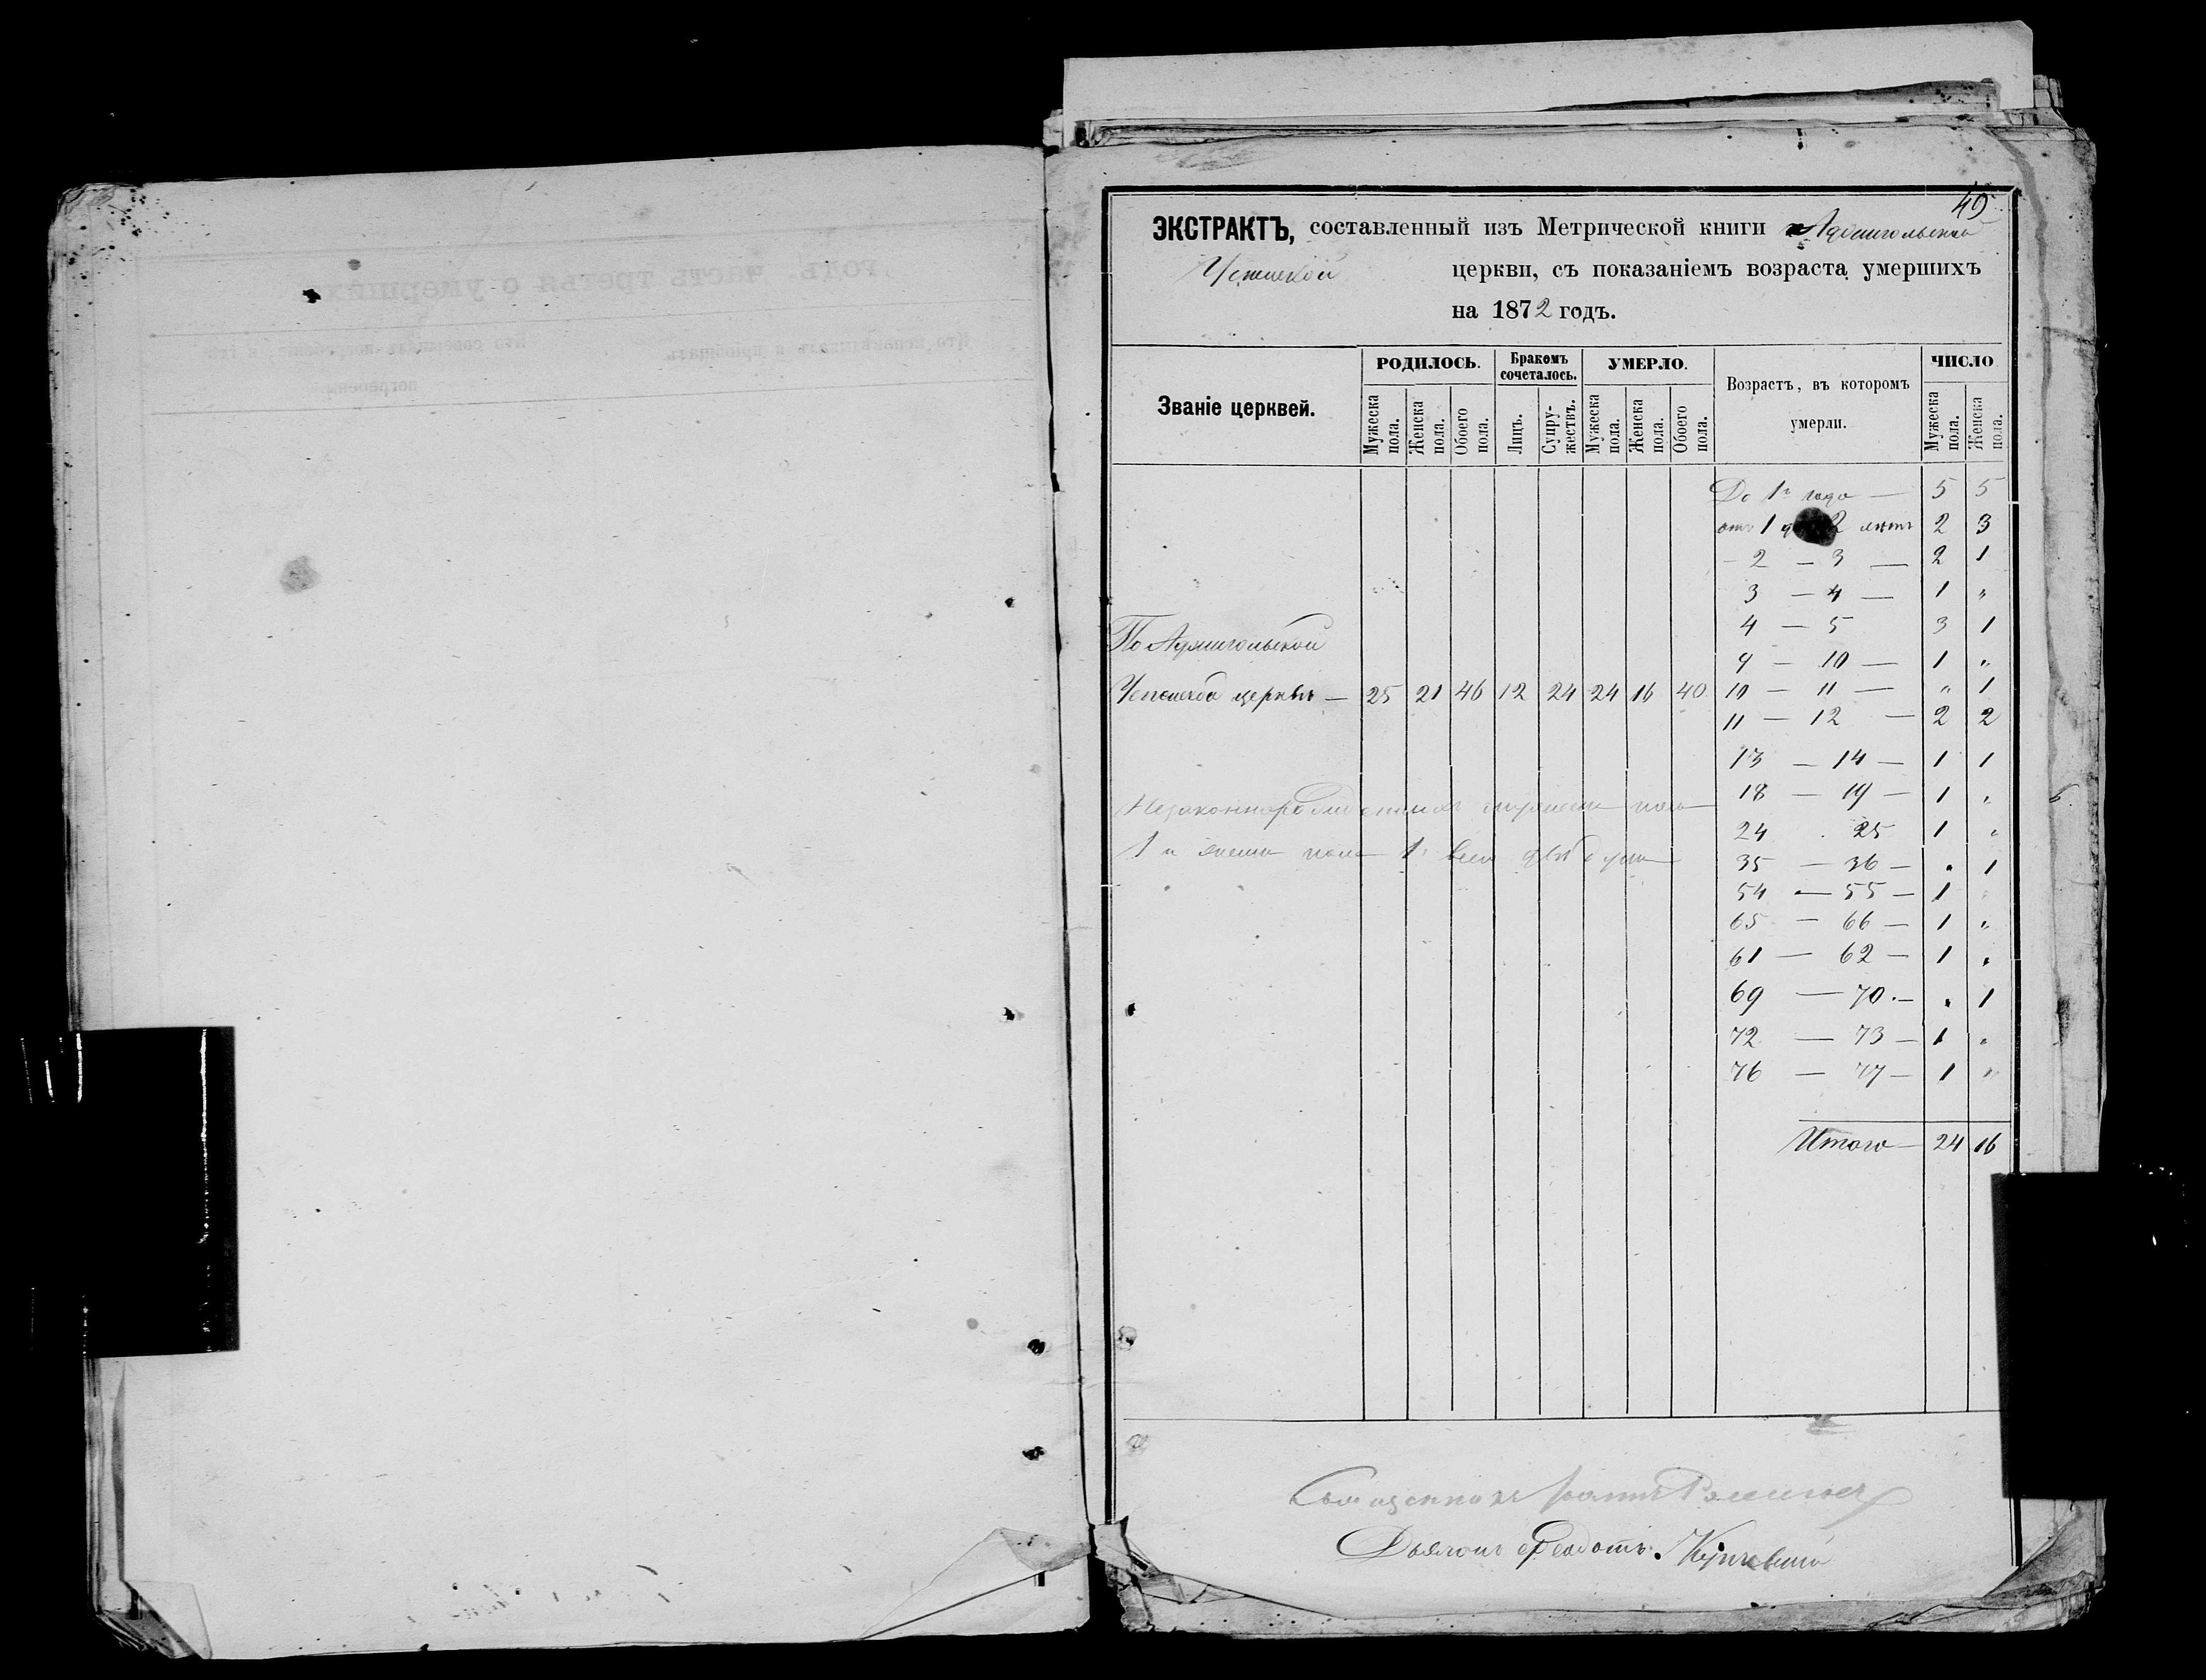 49
ЭКСТРАКТЪ, составленный изъ Метрической книги
церкви, съ показаніемъ возраста умершихъ
на 1872 годъ.
Званіе церквей.
РОДИЛОСЬ.
Бракомъ сочеталось.
УМЕРЛО.
Возрастъ, въ которомъ умерли.
ЧИСЛО
Мужеска пола.
Женска пола.
Обоего пола.
Лицъ.
Супружествъ.
Мужеска пола.
Женска пола.
Обоего пола.
Мужеска пола.
Женска пола.
До 1го года — 5 5
отъ 1 2 летъ 2 3
- 2 — 3 — 2 1
3 — 4 — 1 "
4 — 5 3 1
9 — 10 — 1 "
По
церкви — 25 21 46 12 24 24 16 40
10 — 11 — " 1
11 — 12 — 2 2
13 — 14 — 1 1
18 — 19 — 1 "
24 25 1 "
35 — 36 — " 1
54 — 55 — 1 "
65 — 66 — 1 "
61 — 62 — 1 "
69 — 70 — " 1
72 — 73 — 1 "
76 — 77 — 1 "
Итого — 24 16
Священникъ Іоаннъ
Дьяконъ Феодотъ